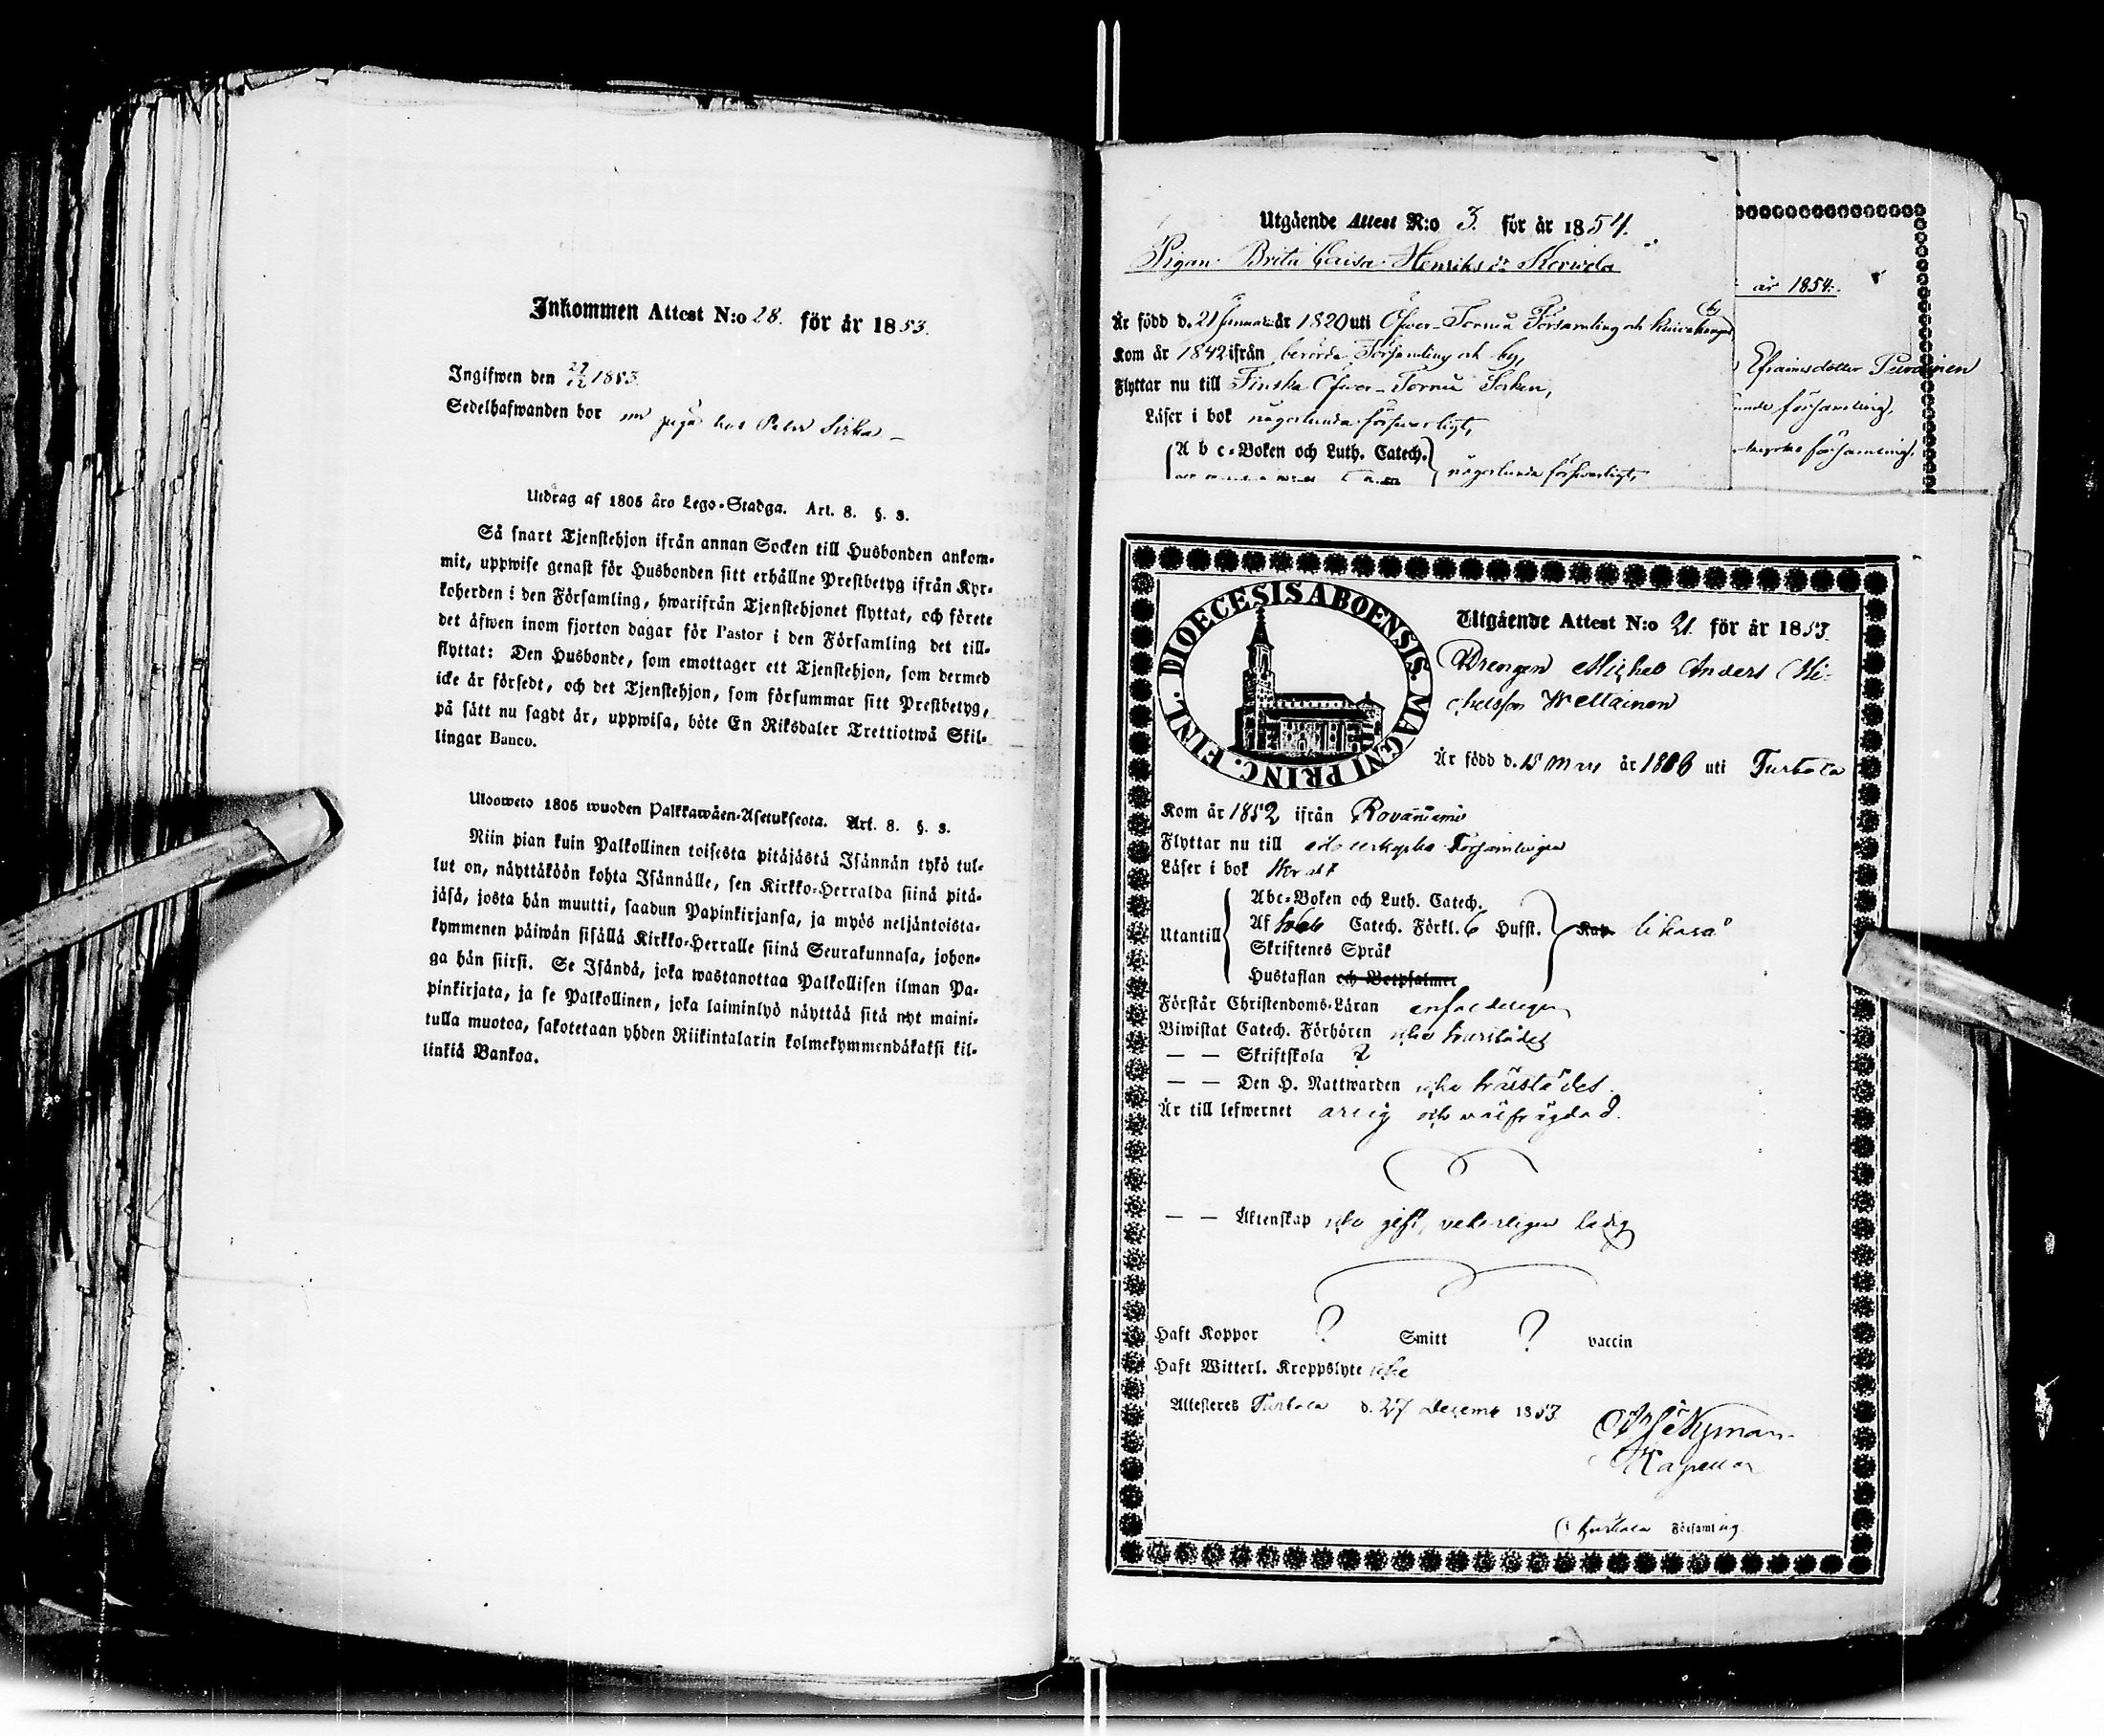 Inkommen Attest N:o 28. för år 1853.
Ingifwen den 27/12 1853.
Sedelhafwanden bor som piga hos Peter Sirka
Utdrag af 1805 års Lego-Stadga. Art. 8. §. 3.
Så snart Tjenstehjon ifrån annan Socken till Husbonden ankom-
mit, uppwise genast för Husbonden sitt erhållne Prestbetyg ifrån Kyr-
koherden i den Församling, hwarifrån Tjenstehjonet flyttat, och förete
det äfwen inom fjorton dagar för Pastor i den Församling det till-
flyttat: Den Husbonde, som emottager ett Tjenstehjon, som dermed
icke är försedt, och det Tjenstehjon, som försummar sitt Prestbetyg,
på sätt nu sagdt är, uppwisa, böte En Riksdaler Trettiotwå Skil-
lingar Banco.
Ulosweto 1805 wuoden Palkkawäen-Asetuksesta. Art. 8. §. 3.
Niin pian kuin Palkollinen toisesta pitäjästä Isännän tykö tul-
lut on, näyttäköön kohta Isännälle, sen Kirkko-Herralda siinä pitä-
jäsä, josta hän muutti, saadun Papinkirjansa, ja myös neljäntoista-
kymmenen päiwän sisällä Kirkko-Herralle siinä Seurakunnasa, johon-
ga hän siirsi. Se Isändä, joka wastanottaa Palkollisen ilman Pa-
pinkirjata, ja se Palkollinen, joka laiminlyö näyttää sitä nyt maini-
tulla muotoa, sakotetaan yhden Riikintalarin kolmekymmendäkaksi kil-
linkiä Bankoa.
Utgående Attest N:o 3. för år 1854.
Pigan Brita Caisa Henriks dr
Är född d. 21 Januari år 1820 uti Öfwer-Torneå Församling och by
Kom år 1842 ifrån berörde Församling och by,
Flyttar nu till Finska Öfwer-Torneå Socken,
Läser i bok någorlunda försvarligt,
A b c-Boken och Luth. Catech. någorlunda försvarligt,
år 1854.
Efraimsdotter Puranen
församling,
församling.
DIOECESIS ABOENSIS. MAGNI PRINC. FINL.
Utgående Attest N:o 21. för år 1853.
Drengen Michel Anders Mi-
chelsson Wettainen
Är född d. 15 Mars år 1836 uti Turtola
Kom år 1852 ifrån Rovaniemi
Flyttar nu till Församlingen
Läser i bok
Abc-Boken och Luth. Catech.
Utantill Af Catech. Förkl. 6 Hufst. likaså
Skriftenes Språk
Hustaflan och Botpsalmer
Förstår Christendoms-Läran enfaldeligen
Biwistat Catech. Förhören icke härstädes
— — Skriftskola ?
— — Den H. Nattwarden icke härstädes.
Är till lefwernet ärlig och wälfrägdad.
— — Äktenskap icke gift, veterligen ledig
Haft Koppor ? Smitt ? vaccin
Haft Witterl. Kroppslyte icke
Attesteras Turtola d. 27 Decemb 1853
Nyman
Kapellan
i Turtola Församling.